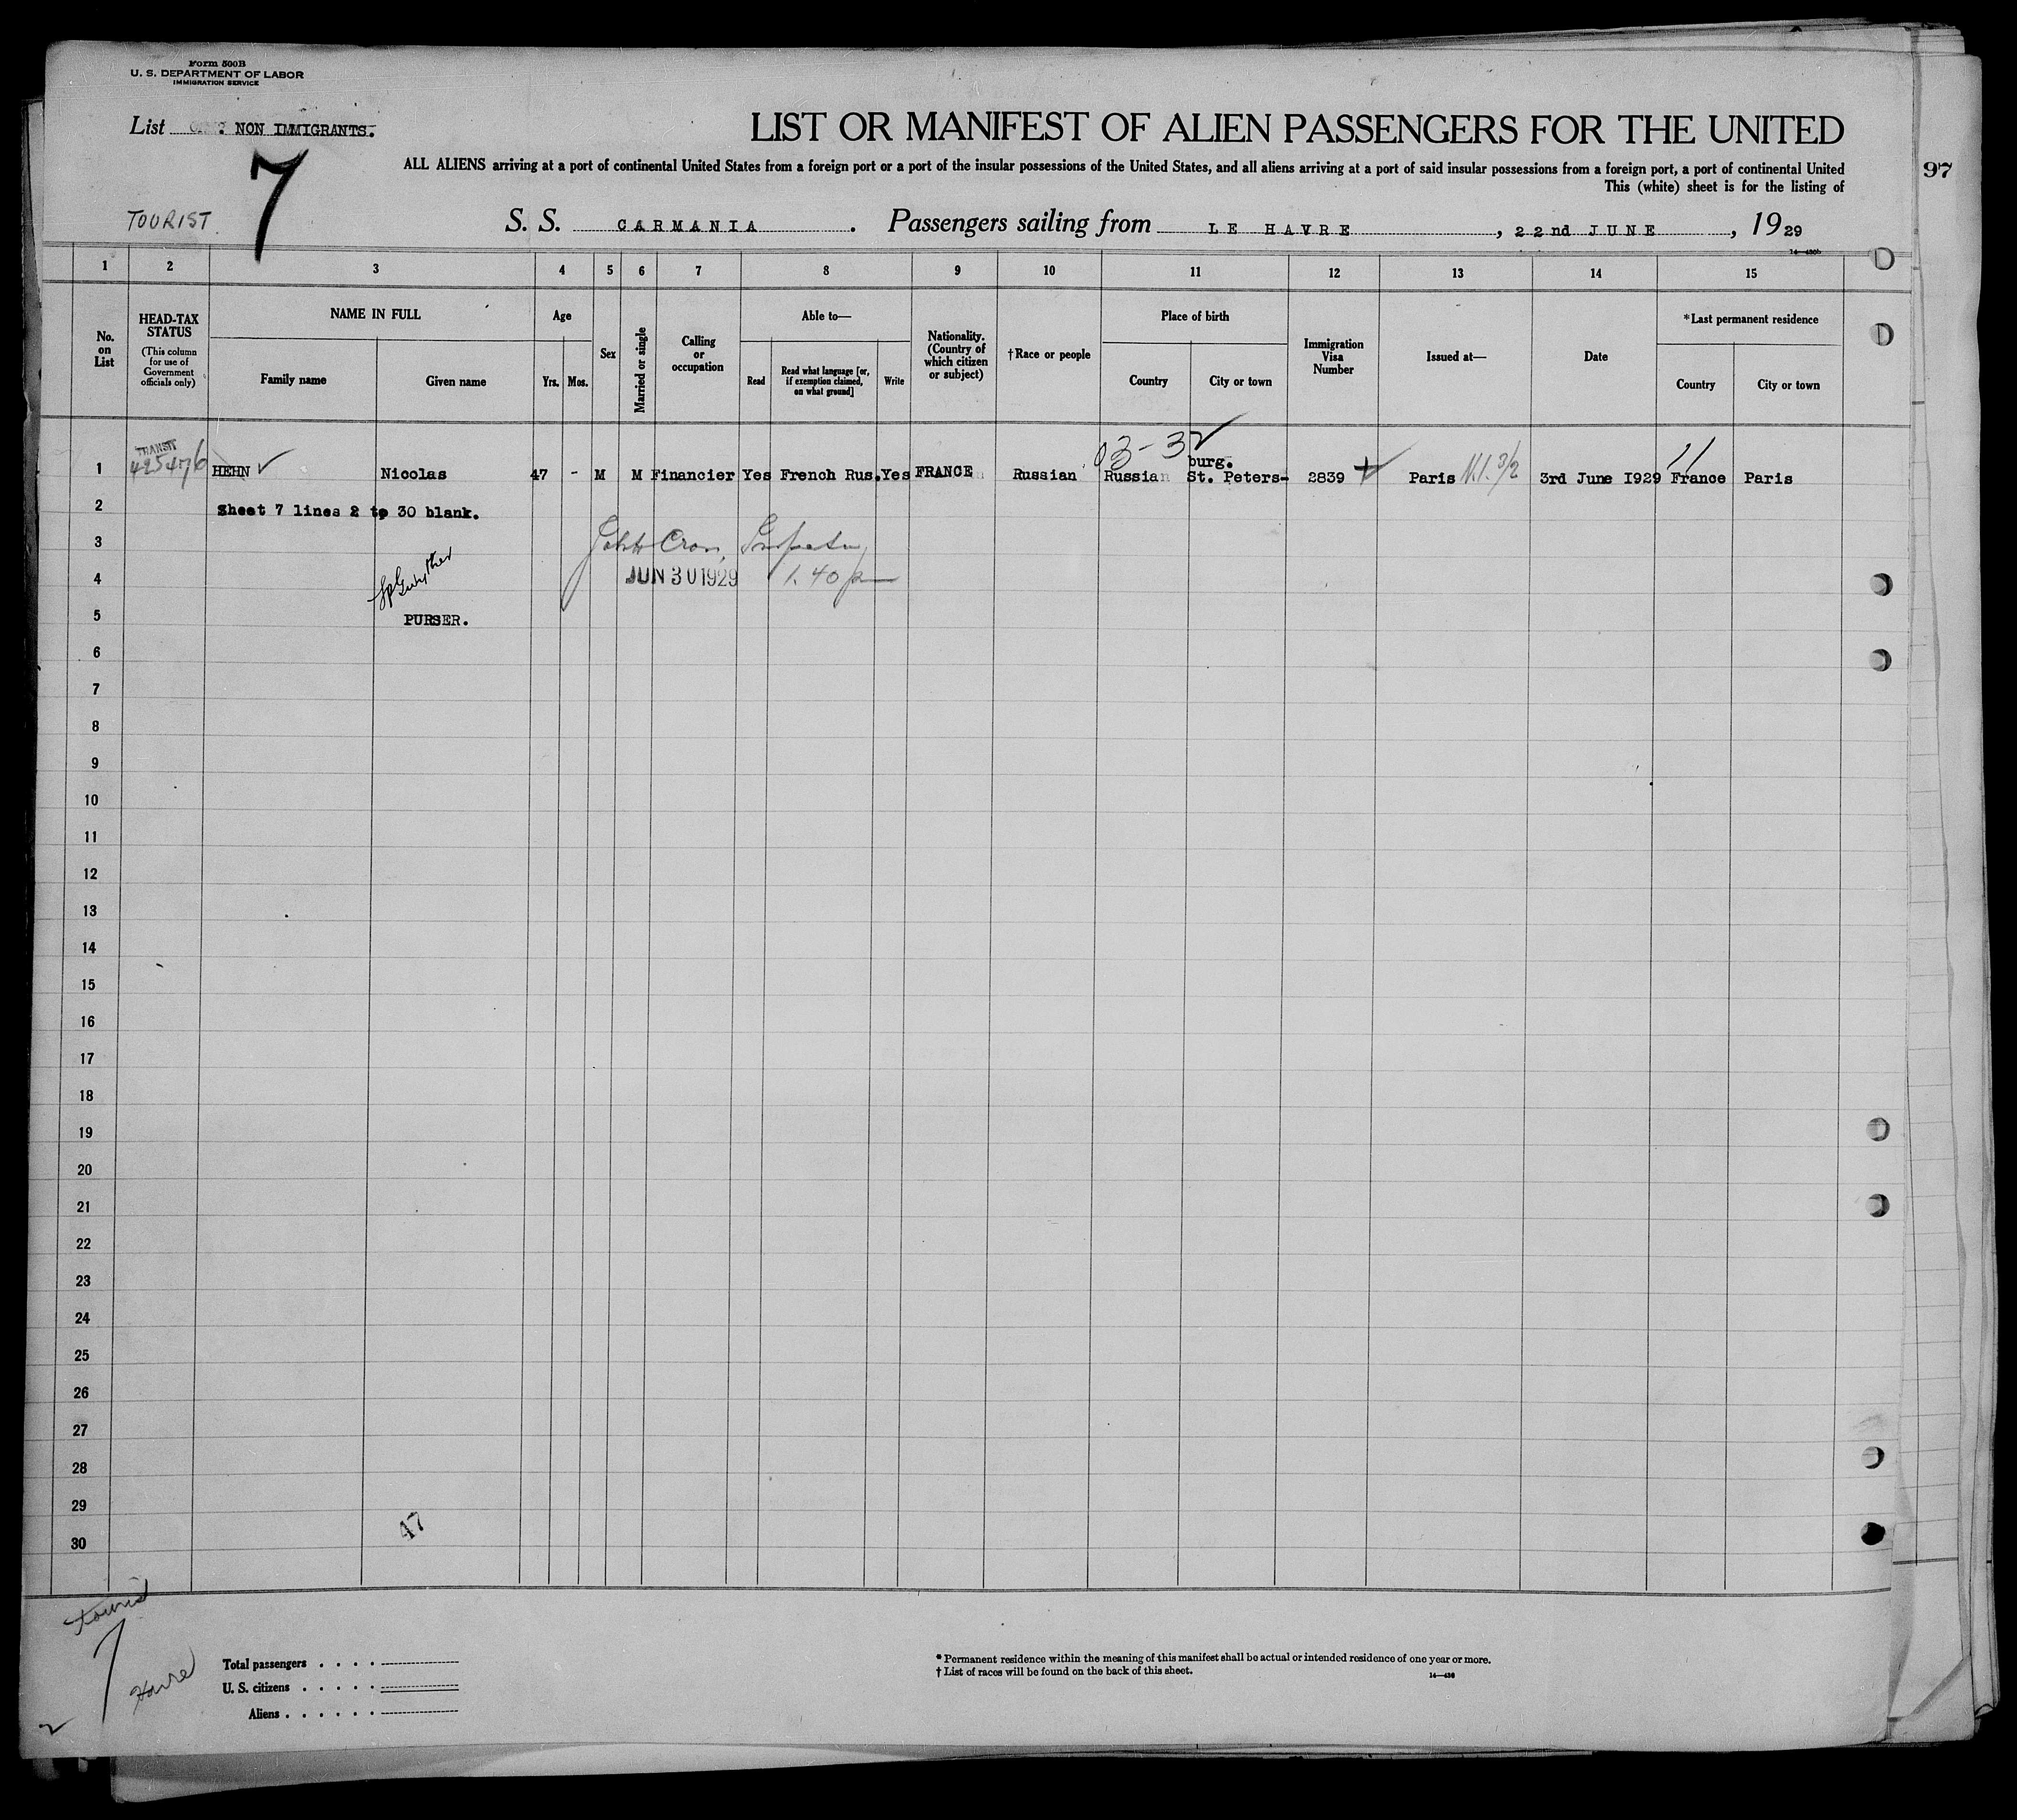 Form 500B
U. S. DEPARTMENT OF LABOR
IMMIGRATION SERVICE
List NON IMMIGRANTS.
7
TOURIST.
LIST OR MANIFEST OF ALIEN PASSENGERS FOR THE UNITED
ALL ALIENS arriving at a port of continental United States from a foreign port or a port of the insular possessions of the United States, and all aliens arriving at a port of said insular possessions from a foreign port, a port of continental United
This (white) sheet is for the listing of
97
S. S. CARMANIA. Passengers sailing from LE HAVRE, 22nd JUNE, 1929
14—430b
1 2 3 4 5 6 7 8 9 10 11 12 13 14 15
No. on List
HEAD-TAX STATUS
(This column for use of Government officials only)
NAME IN FULL
Family name
Given name
Age
Yrs.
Mos.
Sex
Married or single
Calling or occupation
Able to—
Read
Read what language [or, if exemption claimed, on what ground]
Write
Nationality. (Country of which citizen or subject)
†Race or people
Place of birth
Country
City or town
Immigration Visa Number
Issued at—
Date
*Last permanent residence
Country
City or town
TRANSIT
03-3
burg.
1 425476 HEHN ✓ Nicolas 47 - M M Financier Yes French Rus. Yes FRANCE Russian Russian St. Peters- 2839 Paris 3rd June 1929 France Paris
2 Sheet 7 lines 2 to 30 blank.
3
4 JUN 30 1929 1.40 pm
5 PURSER.
6
7
8
9
10
11
12
13
14
15
16
17
18
19
20
21
22
23
24
25
26
27
28
29
30
47
tourist
7
Havre
2
Total passengers . . . .
U. S. citizens . . . . .
Aliens . . . . . .
* Permanent residence within the meaning of this manifest shall be actual or intended residence of one year or more.
† List of races will be found on the back of this sheet.
14—430